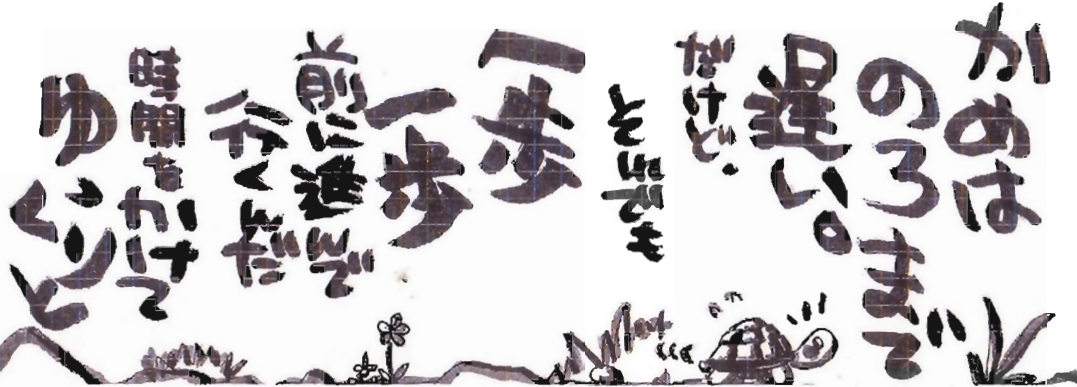 かめは
のろまで
遅い。
だけど、
一歩
一歩
前に進んで
行くんだ
時間をかけて
ゆっくりと